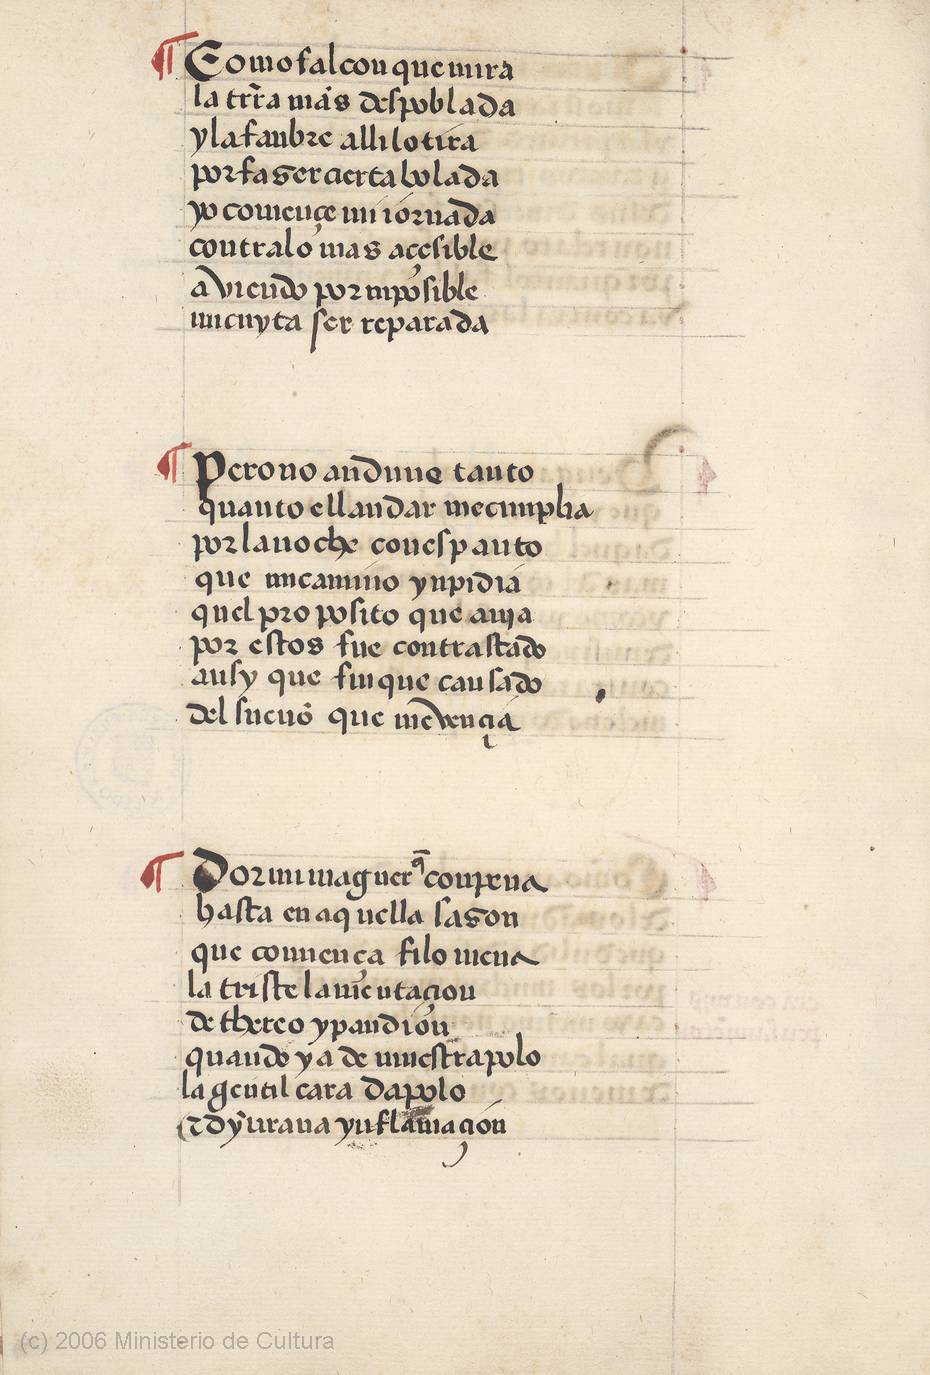 ¶ Como falcon que mira
la trr̃a mas despoblada
y la fanbre alli lo tira
por faser cierta bolada
yo començe mi iornada
contra lo mas açesible
aviendo por inposible
mi cuyta ser reparada
¶ Pero no andune tanto
quanto el landar me cunplia
por la noche con espanto
que mi camino ynpidia
quel proposito que auia
por estos fue contrastado
ansy que finque cansado
del sueño que me vençia
¶ Dormi maguer q̃ con pena
hasta en aquella sason
que comiença filomena
la triste lamentaçion
de thereo y pandion
quando ya demuestra polo
la gentil cara dapolo
(c) 2006 Ministerio de Cultura